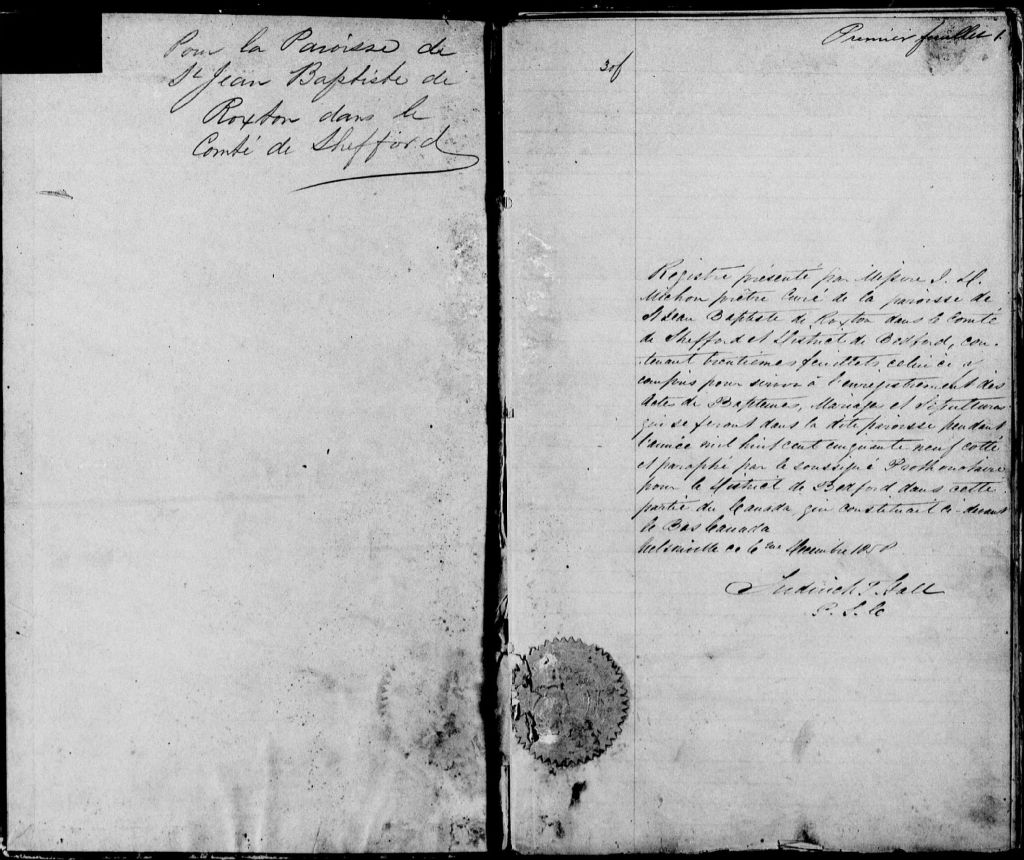 Pour la Paroisse de
St Jean Baptiste de
Roxton dans le
Comté de Shefford
Premier feuillet 1
30f
Registre présenté par Messire J. H.
Michon prêtre Curé de la paroisse de
St Jean Baptiste de Roxton dans le Comté
de Shefford et District de Bedford, con-
-tenant feuillets celui ci y
compris pour servir à l'enregistrement des
Actes de Baptemes, Mariages et Sépultures
qui se feront dans la dite paroisse pendant
l'année mil huit cent cinquante neuf cotté
et paraphé par le soussigné Prothonotaire
pour le District de Bedford dans cette
partie du Canada qui constituait ci-devant
le Bas Canada
Nelsonville ce 6me Decembre 1858
P. S. C